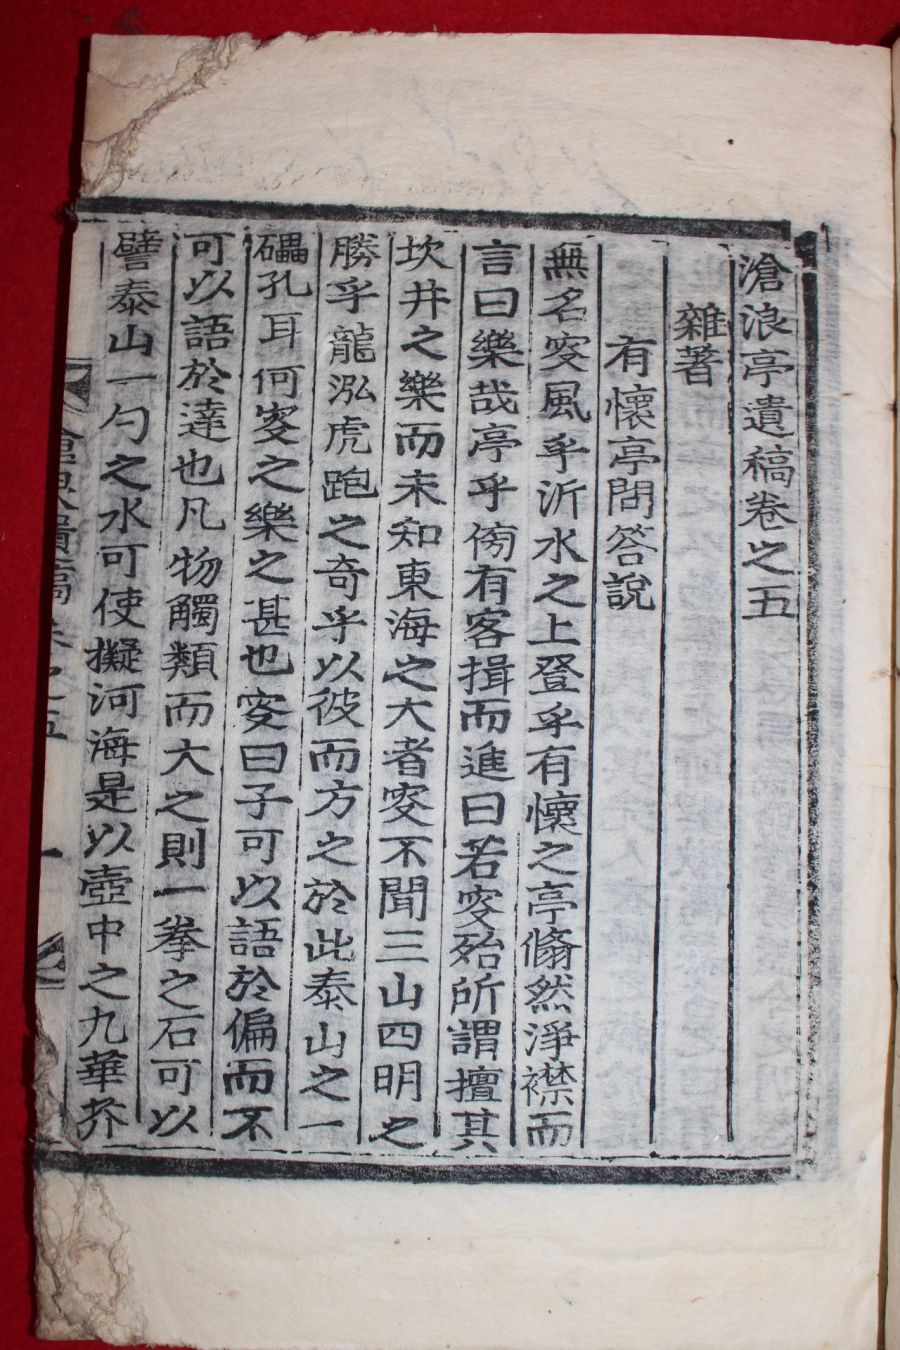 滄浪亭遺稿卷之五
雜著
有懷亭問答說
無名叜風乎沂水之上登乎有懷之亭翛然淨襟而
言曰樂哉亭乎傍有客揖而進曰若叜殆所謂擅其
坎井之樂而未知東海之大者叜不聞三山四明之
勝乎龍泓虎跑之奇乎以彼而方之於此泰山之一
礨孔耳何叜之樂之甚也叜曰子可以語於偏而不
可以語於達也凡物觸類而大之則一拳之石可以
譬泰山一勺之水可使擬河海是以壺中之九華芥